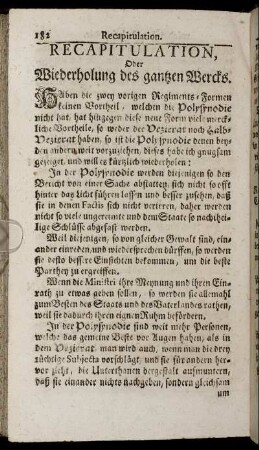 182 Recapitulation.
RECAPITULATION,
Oder
Wiederholung des gantzen Wercks.
HAben die zwey vorigen Regiments-Formen
keinen Vortheil, welchen die Polysynodie
nicht hat, hat hingegen diese neue Form viel merck-
liche Vortheile, so weder der Vezierat noch Halb-
Vezierat haben, so ist die Polysynodie denen bey-
den andern weit vorzuziehen, dieses habe ich gnugsam
gezeiget, und will es kürzlich wiederholen:
In der Polysynodie werden diejenigen so den
Bericht von einer Sache abstatten, sich nicht so offt
hinter das Licht führen lassen und besser zusehen, daß
sie in denen Factis sich nicht verirren, daher werden
nicht so viele ungereimte und dem Staate so nachthei-
lige Schlüsse abgefast werden.
Weil diejenigen, so von gleicher Gewalt sind, ein-
ander einreden, und wiedersprechen dürffen, so werden
sie desto bessere Einsichten bekommen, um die beste
Parthey zu ergreiffen.
Wenn die Ministri ihre Meynung und ihren Ein-
rath zu etwas geben sollen, so werden sie allemahl
zum Besten des Staats und des Vaterlandes rathen,
weil sie dadurch ihren eigenen Ruhm befördern.
In der Polysynodie sind weit mehr Personen,
welche das gemeine Beste vor Augen haben, als in
dem Vezierat, man wird auch, wenn man die drey
tüchtige Subjecta vorschlägt, und sie für andern her-
vor zieht, die Unterthanen dergestalt aufmuntern,
daß sie einander nichts nachgeben, sondern gleichsam
um